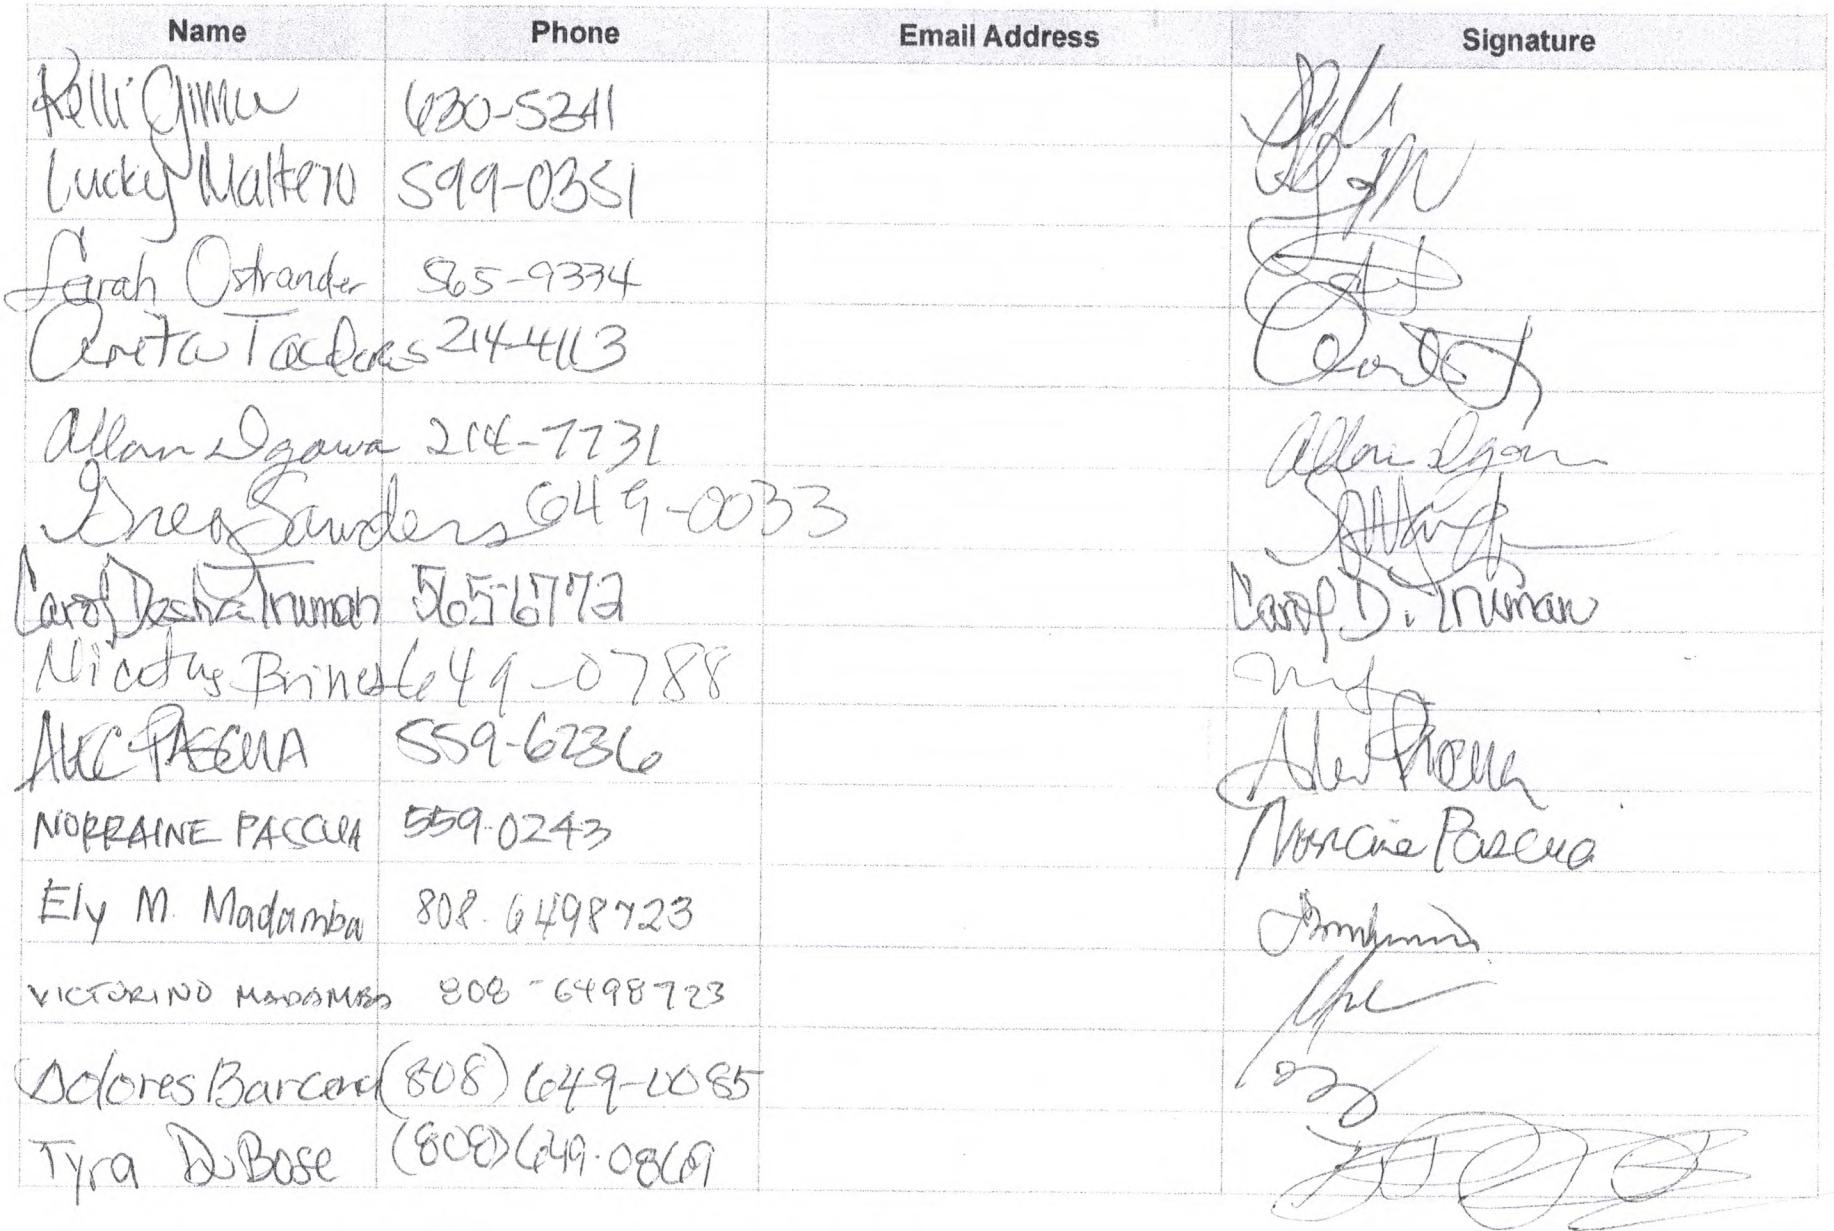 Name Phone Email Address Signature
Kelli Gima 630-5241
Lucky Maltezo 599-0351
Sarah Ostrander 565-9334
214-4113
Allan Igawa 214-7731 Allan Igawa
Greg Saunders 649-0033
Carol Dasha Truman 565-6772 Carol D. Truman
649-0788
ALEC PASCUA 559-6236 Alec Pascua
NORRAINE PASCUA 559-0243 Norraine Pascua
Ely M. Madamba 808.6498723
VICTORINO MADAMBA 808-6498723
Dolores Barcena (808) 649-0085
Tyra DuBose (808) 649-0869